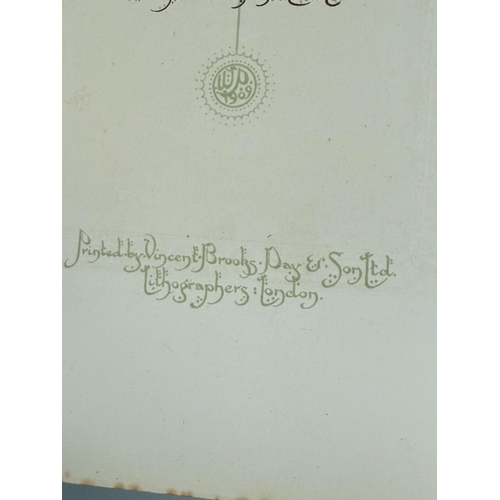 W.P.
1909
Printed.by.Vincent.Brooks.Day &.Son Ltd.
Lithographers: London.